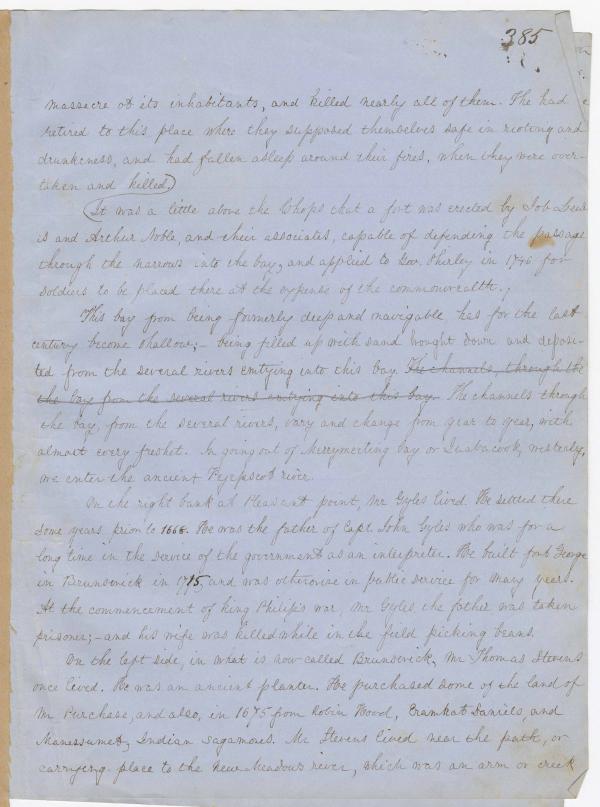 385
massacre of its inhabitants, and killed nearly all of them. The had
retired to this place where they supposed themselves safe in rioting and
drunkeness, and had fallen asleep around their fires, when they were over-
taken and killed)
(It was a little above the Chops that a fort was erected by Job Lew
is and Arthur Noble, and their associates, capable of defending the passage
through the narrows into the bay, and applied to Gov. Shirley in 1746 for
soldiers to be placed there at the expense of the commonwealth.
This bay from being formerly deep and navigable has for the last
century become shallow;- being filled up with sand brought down and deposi-
ted from the several rivers emtying into this bay. The channels through the
the bay from the several rivers emtying into this bay. The channels through
the bay, from the several rivers, vary and change from year to year, with
almost every freshet. In going out of Merrymeeting bay or Quabacook, westerly,
we enter the ancient Pejepscot river.
On the right bank at Pleasant point, Mr Gyles lived. He settled there
some years prior to 1668. He was the father of Capt. John Gyles who was for a
long time in the service of the government as an interpreter. He built fort George
in Brunswick in 1715 and was otherwise in public service for many years.
At the commencement of king Philip's war, Mr Gyles the father was taken
prisoner;- and his wife was killed while in the field picking beans.
On the left side, in what is now called Brunswick, Mr Thomas Stevens
once lived. He was an ancient planter. He purchased some of the land of
Mr Purchase, and also, in 1675 from Robin Hood, Eramkat Daniels, and
Manessumet, Indian sagamores. Mr Stevens lived near the path, or
carrying-place to the New Meadows river, which was an arm or creek